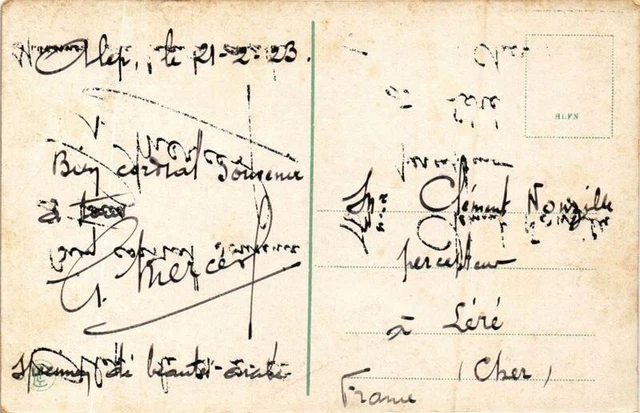 Alep, le 21-2-23.
Bien cordial Souvenir
à tous
G. Mercer
Spécimen de beauté arabe
HLFN
Mr Clément Nouzille
percepteur
à Léré
(Cher)
France